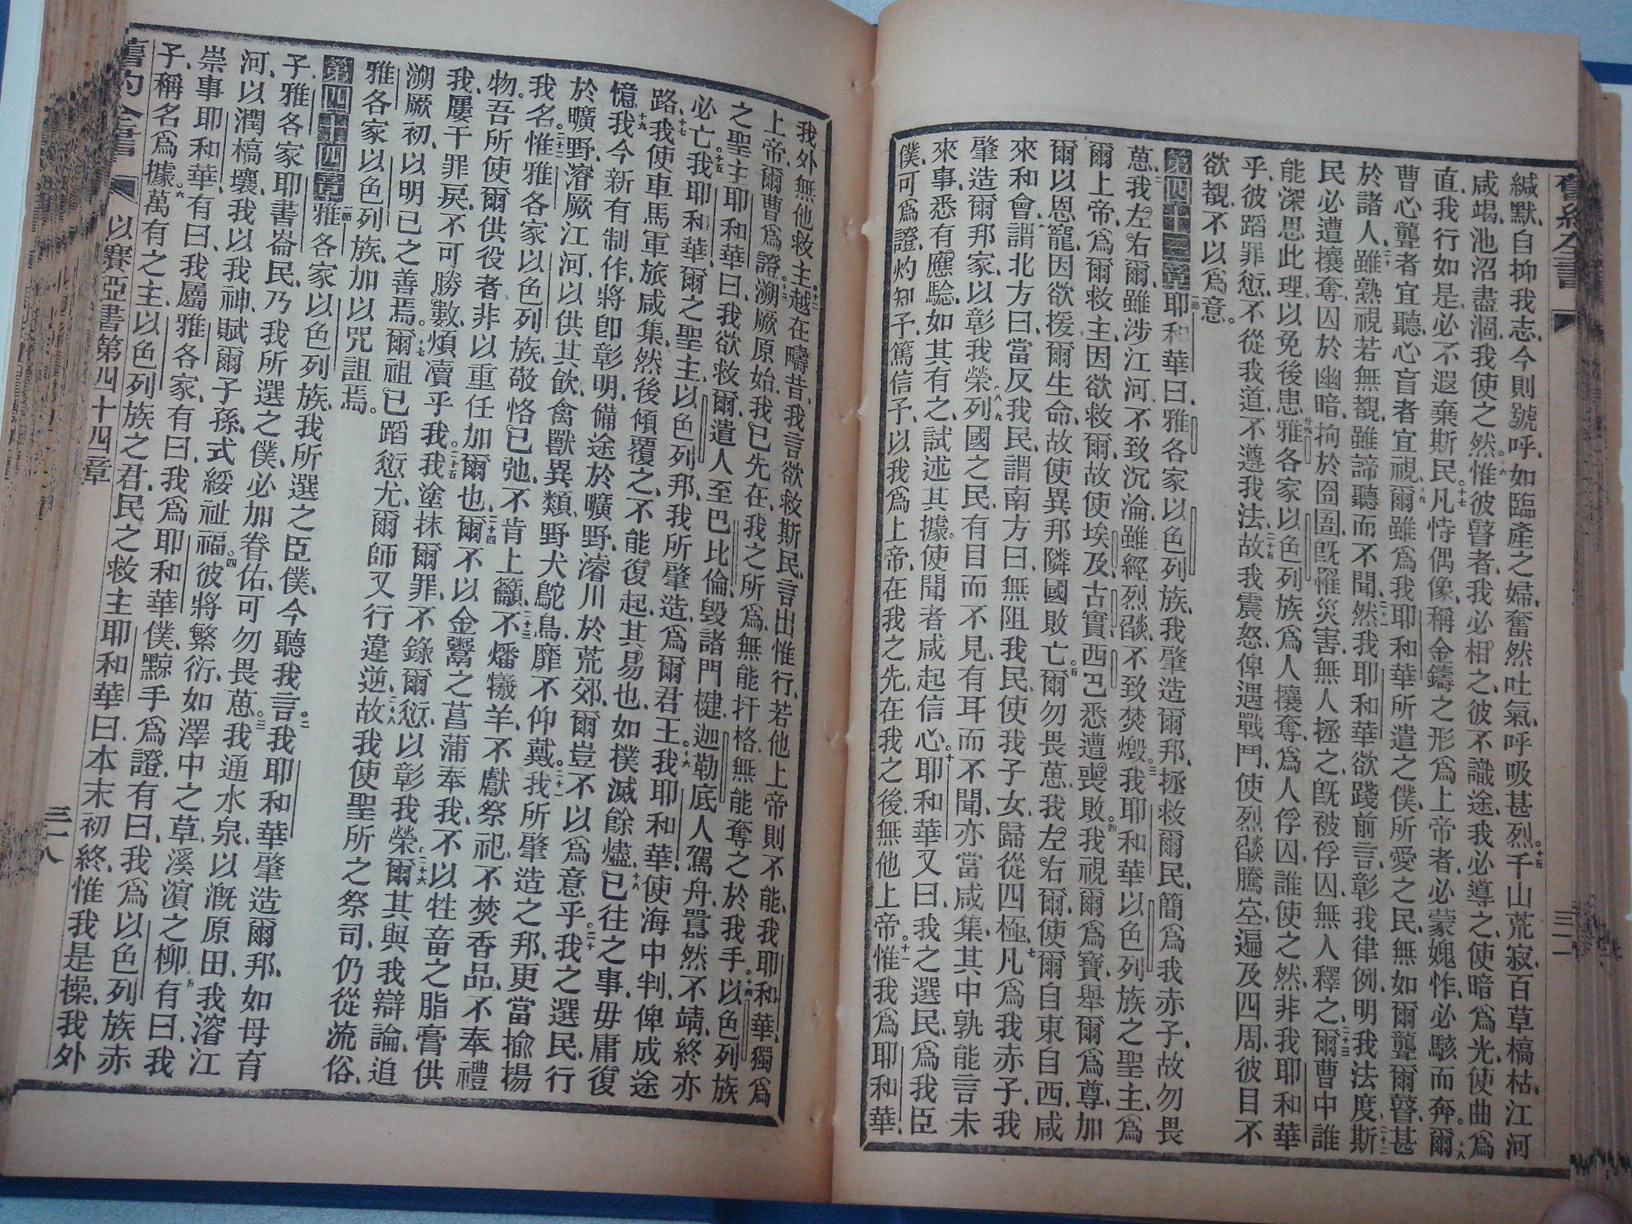 緘默、自抑我志、今則號呼、如臨產之婦、奮然吐氣、呼吸甚烈。十五千山荒寂、百草槁枯、江河
咸竭、池沼盡涸、我使之然。十六惟彼瞽者、我必相之、彼不識途、我必導之、使暗爲光、使曲爲
直、我行如是、必不遐棄斯民。十七凡恃偶像、稱金鑄之形爲上帝者、必蒙媿怍、必駭而奔。十八爾
曹心聾者宜聽、心盲者宜視。十九爾雖爲我耶和華所遣之僕、所愛之民、無如爾聾爾瞽甚
於諸人、二十雖熟視若無覩、雖諦聽而不聞、二一然我耶和華欲踐前言、彰我律例、明我法度、二十二斯
民必遭攘奪、囚於幽暗、拘於囹圄、旣罹災害、無人拯之、旣被俘囚、無人釋之。二十三爾曹中誰
能深思此理、以免後患。廿四雅各家以色列族、爲人攘奪、爲人俘囚、誰使之然、非我耶和華
乎、彼蹈罪愆、不從我道、不遵我法、二十五故我震怒、俾遇戰鬥、使烈燄騰空、遍及四周、彼目不
欲覩、不以爲意。
第四十三章一節耶和華曰、雅各家以色列族、我肇造爾邦、拯救爾民、簡爲我赤子、故勿畏
葸、我左右爾、二雖涉江河、不致沉淪、雖經烈燄、不致焚燬。三我耶和華以色列族之聖主、爲
爾上帝、爲爾救主、因欲救爾、故使埃及、古實、西巴、悉遭喪敗。四我視爾爲寶、舉爾爲尊、加
爾以恩寵、因欲援爾生命、故使異邦隣國敗亡。五爾勿畏葸、我左右爾、使爾自東自西、咸
來和會、六謂北方曰、當反我民、謂南方曰、無阻我民、使我子女、歸從四極、七凡爲我赤子、我
肇造爾邦家、以彰我榮。八九列國之民、有目而不見、有耳而不聞、亦當咸集、其中孰能言未
來事、悉有應驗、如其有之、試述其據、使聞者咸起信心。十耶和華又曰、我之選民、爲我臣
僕、可爲證、灼知予、篤信予、以我爲上帝、在我之先、在我之後、無他上帝。十一惟我爲耶和華、
我外無他救主、十二越在疇昔、我言欲救斯民、言出惟行、若他上帝則不能、我耶和華獨爲
上帝、爾曹爲證。十三溯厥原始、我已先在、我之所爲、無能扞格、無能奪之於我手。十四以色列族
之聖主耶和華曰、我欲救爾、遣人至巴比倫、毀諸門楗、迦勒底人駕舟、囂然不靖、終亦
必亡。十五我耶和華、爾之聖主、以色列邦、我所肇造、爲爾君王。十六我耶和華、使海中判、俾成途
路、十七我使車馬軍旅咸集、然後傾覆之、不能復起、其易也、如撲滅餘燼。十八已往之事、毋庸復
憶、十九我今新有制作、將卽彰明、備途於曠野、濬川於荒郊、爾豈不以爲意乎。二十我之選民、行
於曠野、濬厥江河、以供其飮、禽獸異類、野犬鴕鳥、靡不仰戴。二十一我所肇造之邦、更當揄揚
我名。二十二惟雅各家以色列族、敬恪已弛、不肯上籲、二十三不燔犧羊、不獻祭祀、不焚香品、不奉禮
物、吾所使爾供役者、非以重任加爾也。二十四爾不以金鬻之菖蒲奉我、不以牲畜之脂膏供
我、屢干罪戾、不可勝數、煩瀆乎我。二十五我塗抹爾罪、不錄爾愆、以彰我榮。二十六爾其與我辯論、追
溯厥初、以明已之善焉。二十七爾祖已蹈愆尤、爾師又行違逆、二十八故我使聖所之祭司、仍從流俗、
雅各家以色列族、加以咒詛焉。
第四十四章一節雅各家以色列族、我所選之臣僕、今聽我言。二我耶和華、肇造爾邦、如母育
子、雅各家耶書崙民、乃我所選之僕、必加眷佑、可勿畏葸。三我通水泉、以漑原田、我濬江
河、以潤槁壤、我以我神、賦爾子孫、式綏祉福。四彼將繁衍、如澤中之草、溪濱之柳、五有曰、我
崇事耶和華、有曰、我屬雅各家、有曰、我爲耶和華僕、黥手爲證、有曰、我爲以色列族赤
子、稱名爲據。六萬有之主、以色列族之君、民之救主耶和華曰、本末初終、惟我是操、我外
舊約全書 以賽亞書第四十四章 三十八